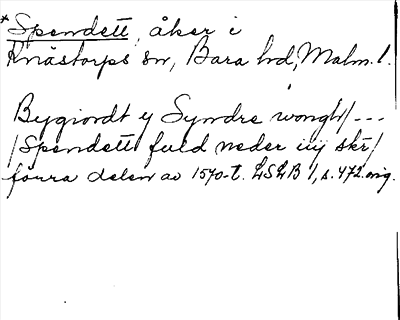 *Spendett, åker i
Knästorps sn, Bara hd, Malm. l.
Bygiordt y Syndre wongh/---
/Spendett fuld neder iiij skr/
förra delen av 1570-t. LSLB 1, s. 472. orig.